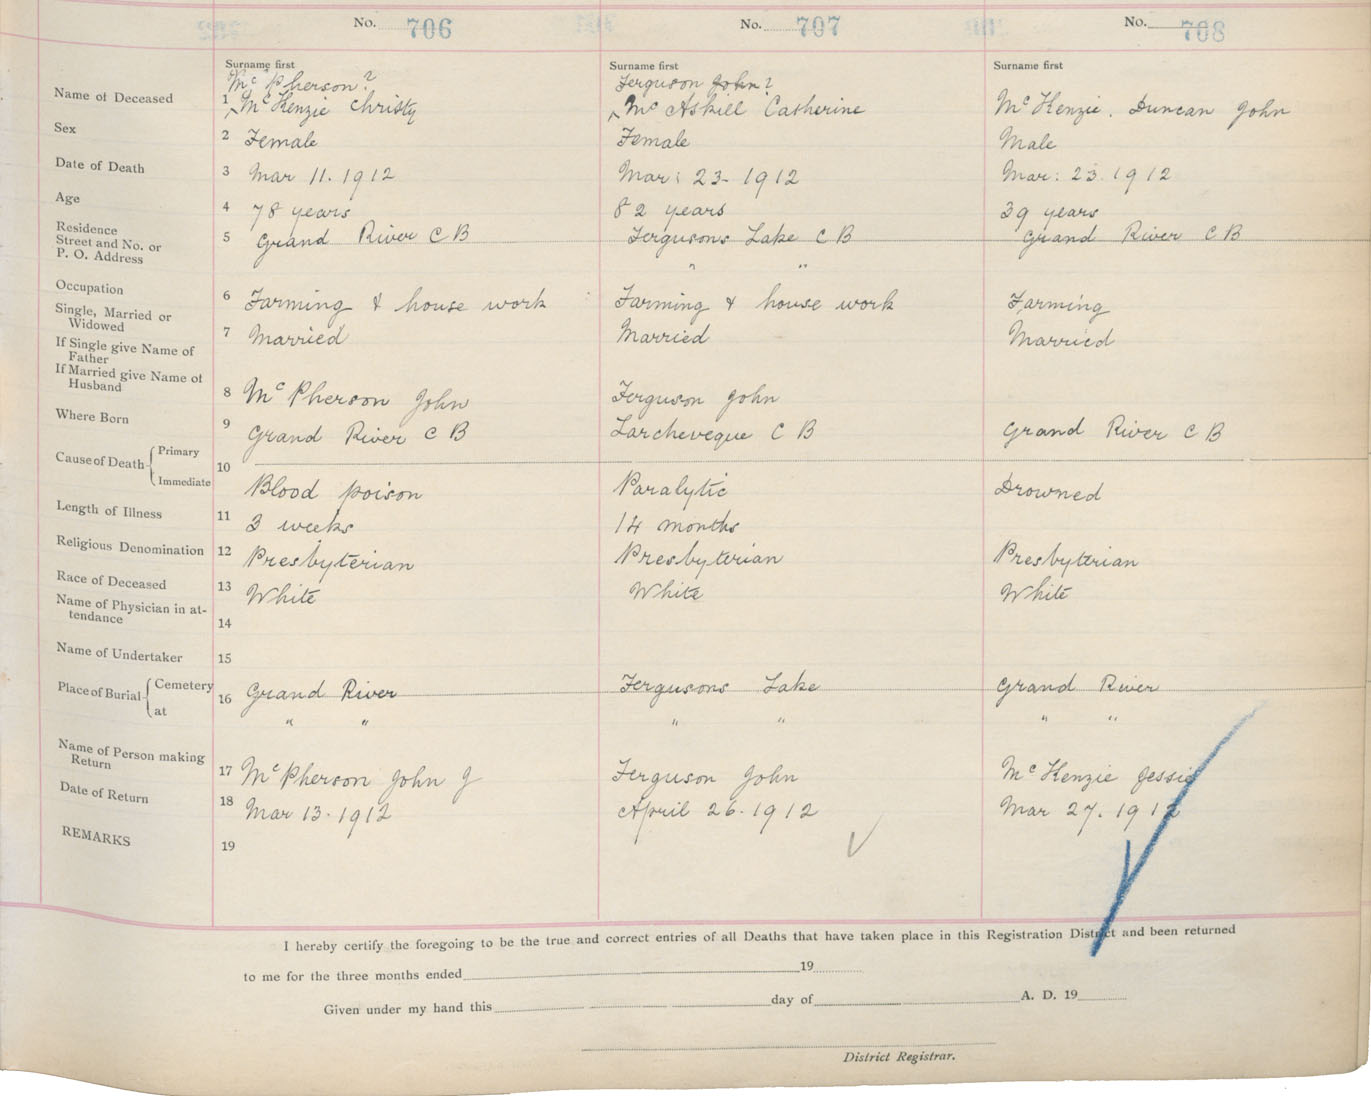 No. 706 No. 707 No. 708
Surname first Surname first Surname first
McPherson? Ferguson John?
Name of Deceased 1 McKenzie Christy McAskill Catherine McKenzie. Duncan John
Sex 2 Female Female Male
Date of Death 3 Mar 11. 1912 Mar: 23- 1912 Mar: 23. 1912
Age 4 78 years 82 years 39 years
Residence
Street and No. or 5 Grand River C B Fergusons Lake C B Grand River C B
P. O. Address " "
Occupation 6 Farming & house work Farming & house work Farming
Single, Married or
Widowed 7 Married Married Married
If Single give Name of
Father
If Married give Name of
Husband 8 McPherson John Ferguson John
Where Born 9 Grand River C B Larcheveque C B Grand River C B
Cause of Death Primary
10
Immediate Blood poison Paralytic Drowned
Length of Illness 11 3 weeks 14 months
Religious Denomination 12 Presbyterian Presbyterian Presbyterian
Race of Deceased 13 White White White
Name of Physician in at-
tendance 14
Name of Undertaker 15
Place of Burial Cemetery 16 Grand River Fergusons Lake Grand River
at " " " " " "
Name of Person making
Return 17 McPherson John J Ferguson John McKenzie Jessie
Date of Return 18 Mar 13. 1912 April 26. 1912 Mar 27. 1912
REMARKS 19
I hereby certify the foregoing to be the true and correct entries of all Deaths that have taken place in this Registration District and been returned
to me for the three months ended 19
Given under my hand this day of A. D. 19
District Registrar.